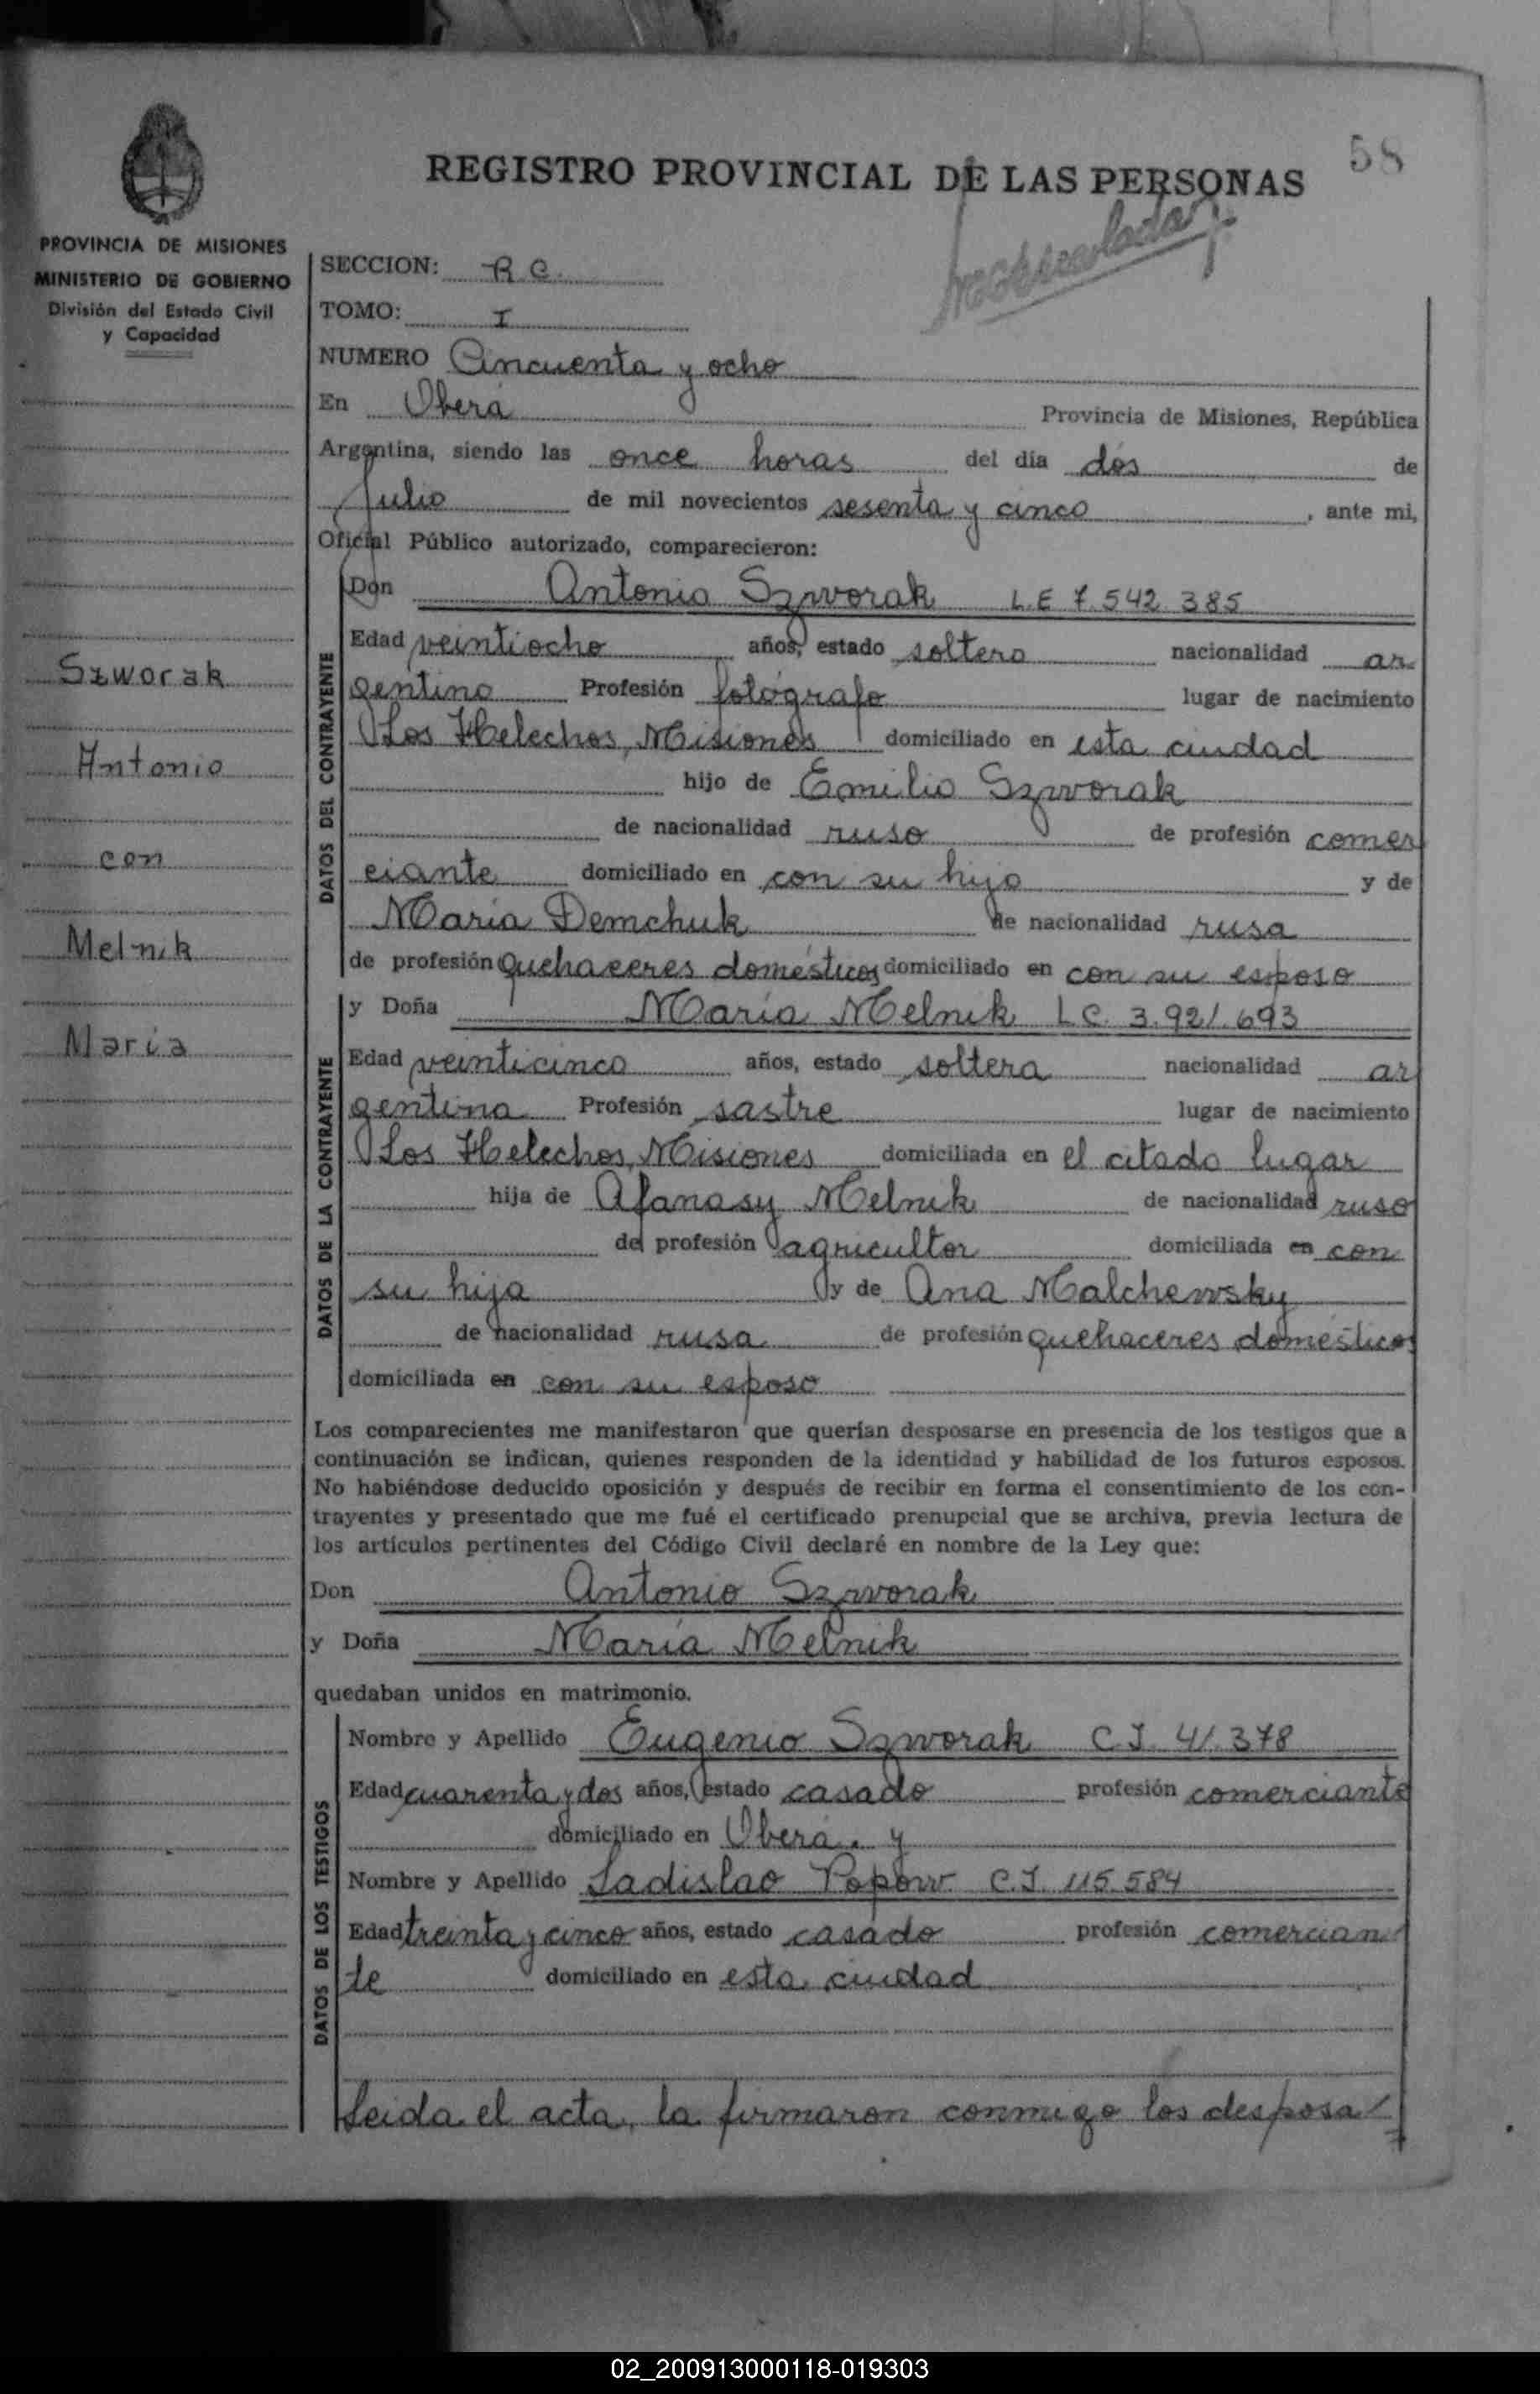 58
REGISTRO PROVINCIAL DE LAS PERSONAS
PROVINCIA DE MISIONES
MINISTERIO DE GOBIERNO
División del Estado Civil
y Capacidad
Szworak
Antonio
con
Melnik
Maria
SECCION: R C.
TOMO: I
NUMERO Cincuenta y ocho
En Oberá Provincia de Misiones, República
Argentina, siendo las once horas del día dos de
Julio de mil novecientos sesenta y cinco, ante mi,
Oficial Público autorizado, comparecieron:
DATOS DEL CONTRAYENTE
Don Antonio Szworak L.E 7.542.385
Edad veintiocho años, estado soltero nacionalidad ar
gentino Profesión fotógrafo lugar de nacimiento
Los Helechos, Misiones domiciliado en esta ciudad
hijo de Emilio Szworak
de nacionalidad ruso de profesión comer
ciante domiciliado en con su hijo y de
María Demchuk de nacionalidad rusa
de profesión quehaceres domésticos domiciliado en con su esposo
DATOS DE LA CONTRAYENTE
y Doña María Melnik L C. 3.921.693
Edad veinticinco años, estado soltera nacionalidad ar
gentina Profesión sastre lugar de nacimiento
Los Helechos, Misiones domiciliada en el citado lugar
hija de Afanasy Melnik de nacionalidad ruso
de profesión agricultor domiciliada en con
su hija y de Ana Malchewsky
de nacionalidad rusa de profesión quehaceres domésticos
domiciliada en con su esposo
Los comparecientes me manifestaron que querían desposarse en presencia de los testigos que a
continuación se indican, quienes responden de la identidad y habilidad de los futuros esposos.
No habiéndose deducido oposición y después de recibir en forma el consentimiento de los con-
trayentes y presentado que me fué el certificado prenupcial que se archiva, previa lectura de
los artículos pertinentes del Código Civil declaré en nombre de la Ley que:
Don Antonio Szworak
y Doña María Melnik
quedaban unidos en matrimonio.
DATOS DE LOS TESTIGOS
Nombre y Apellido Eugenio Szworak C.I. 41.378
Edad cuarenta y dos años, estado casado profesión comerciante
domiciliado en Oberá. y
Nombre y Apellido Ladislao Popow C.I. 115.584
Edad treinta y cinco años, estado casado profesión comercian
te domiciliado en esta ciudad
Leida el acta, la firmaron conmigo los desposa
02_200913000118-019303